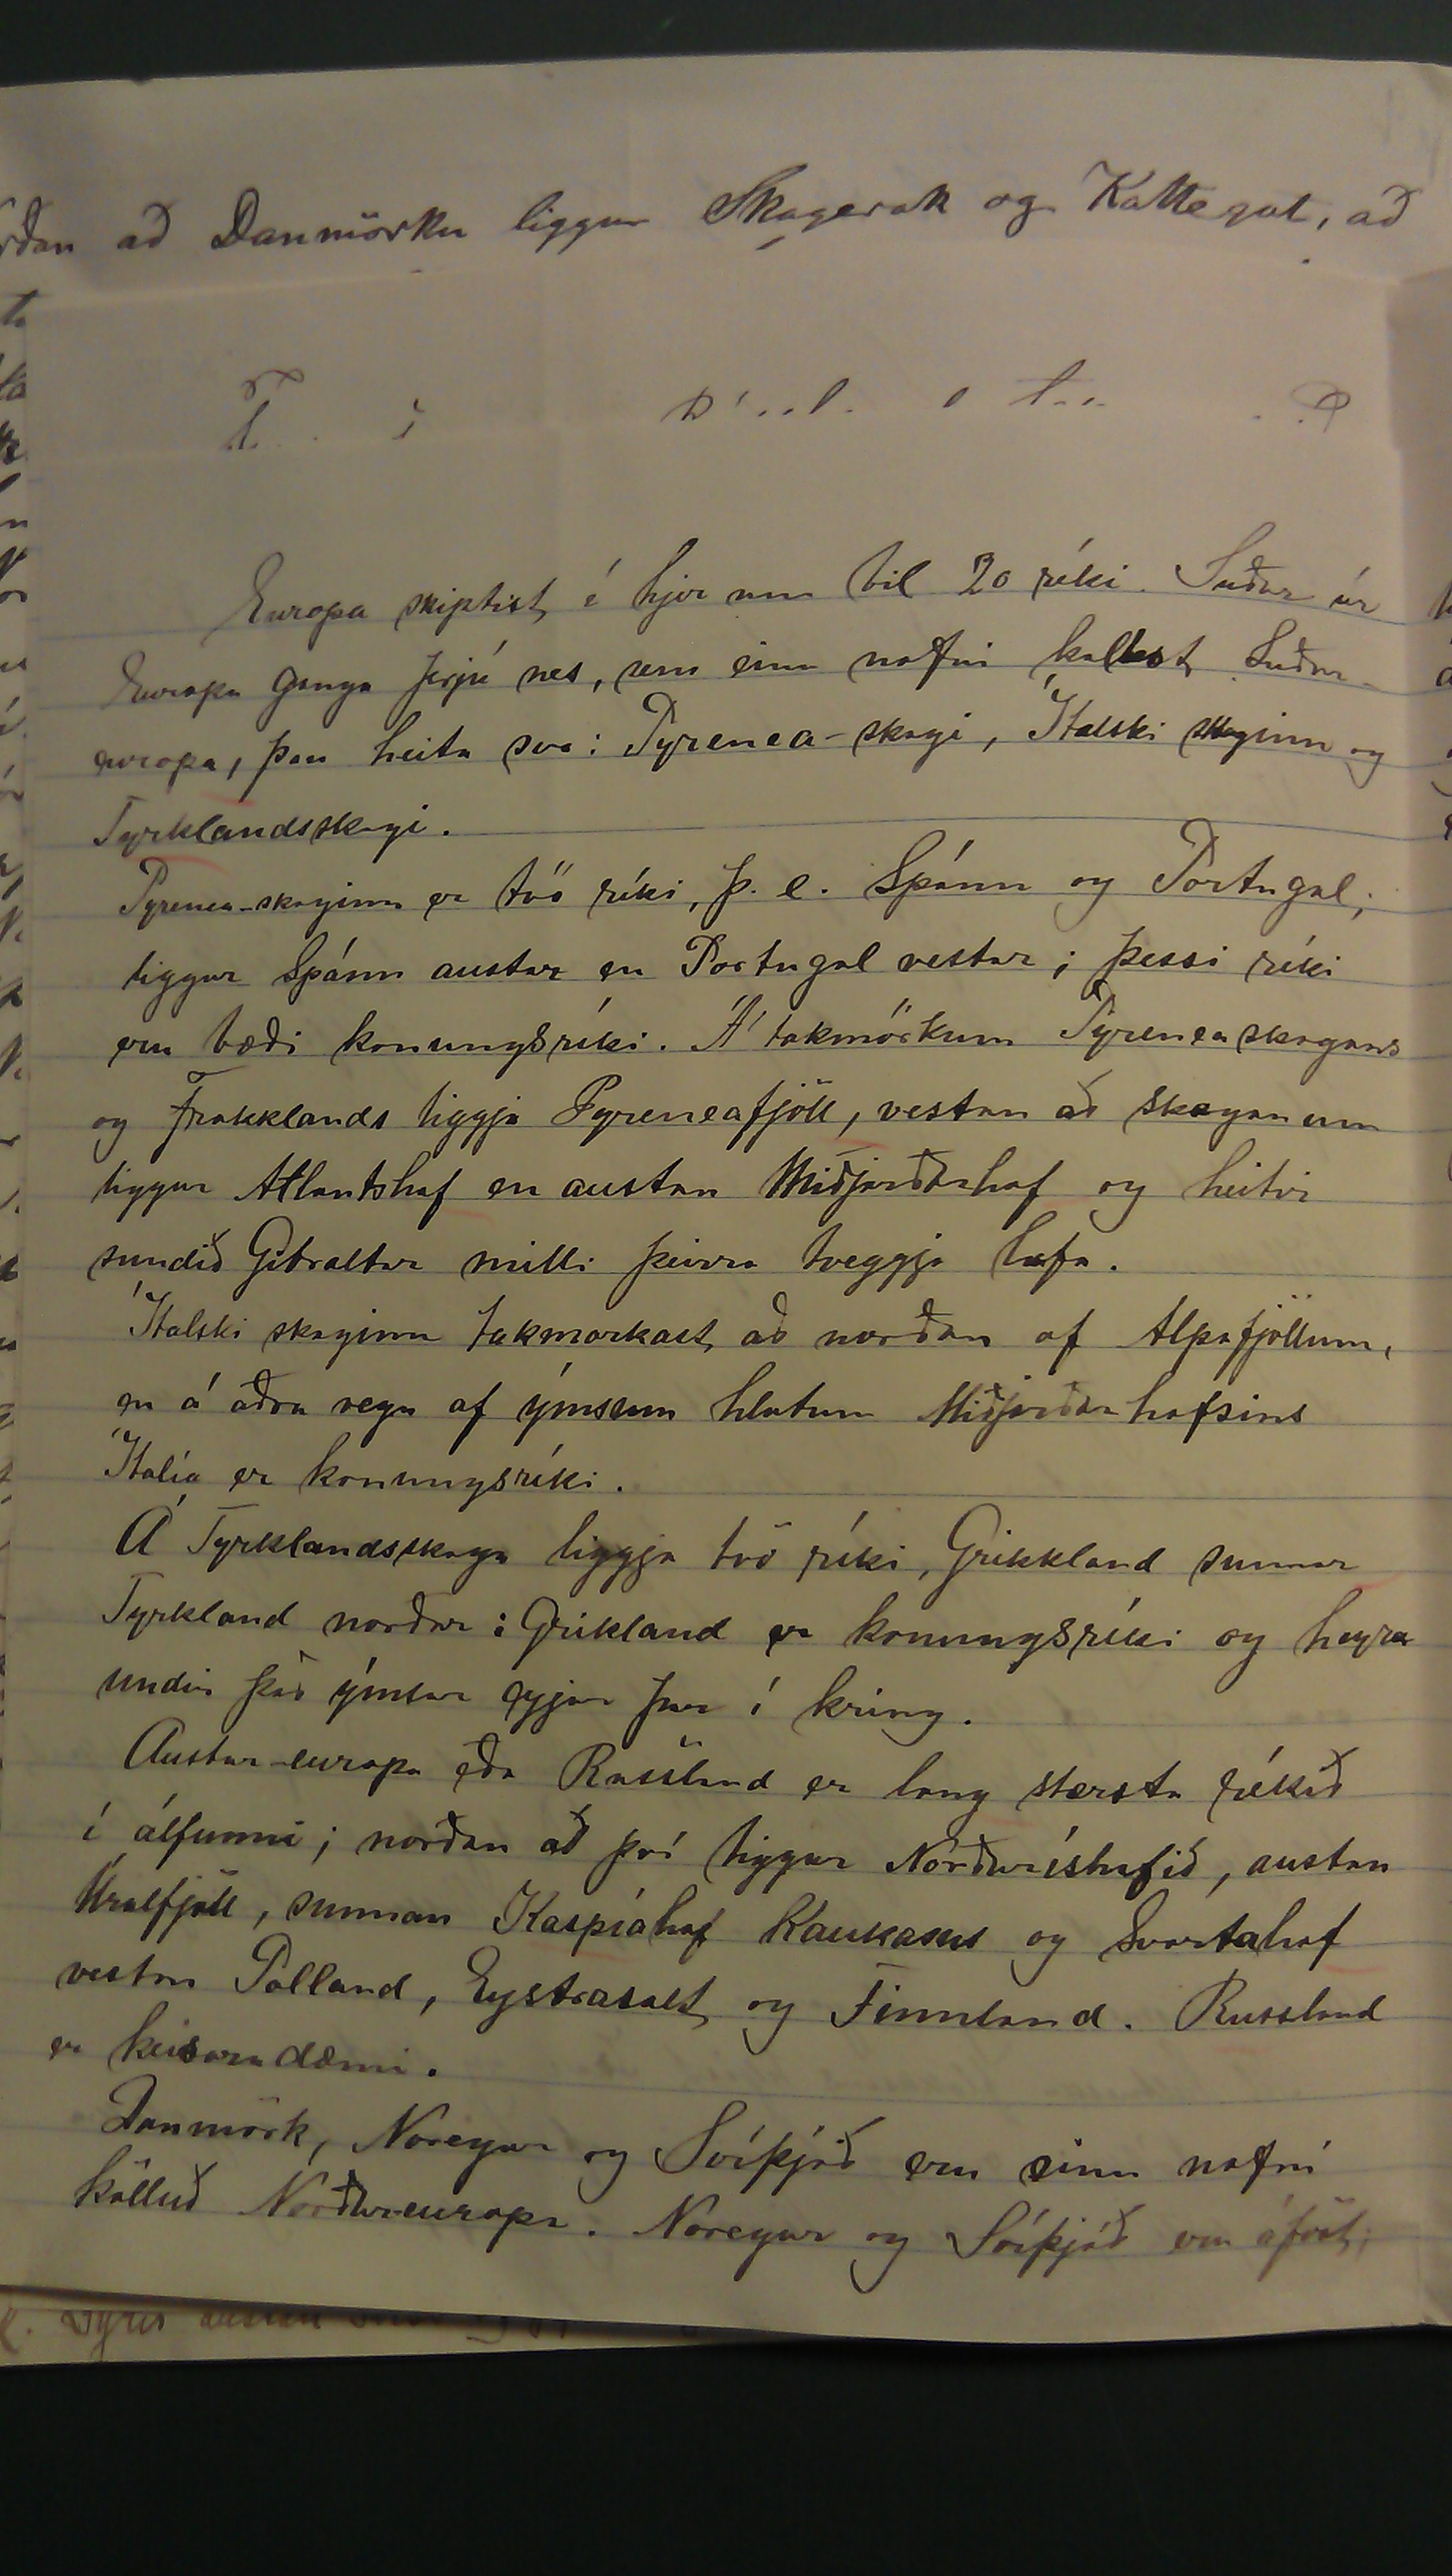 að Danmörku liggur Skagerak og Kattegat, að
Europa skiptist í hjer um bil 20 ríki. Suður úr
Europu ganga þrjú nes, sem einu nafni kallast Suður-
europa, þau heita svo: Pyrenea-skagi, Ítalski skaginn og
Tyrklandsskagi.
Pyrenea-skaginn er tvö ríki, þ. e. Spánn og Portugal;
liggur Spánn austar en Portugal vestar; þessi ríki
eru bæði konungsríki. Á takmörkum Pyreneaskagans
og Frakklands liggja Pyreneafjöll, vestan að skaganum
liggur Atlantshaf en austan Miðjarðarhaf og heitir
sundið Gibraltar milli þeirra tveggja hafa.
Ítalski skaginn takmarkast að norðan af Alpafjöllum,
en á aðra vegu af ýmsum hlutum Miðjarðarhafsins
Ítalía er konungsríki.
Á Tyrklandsskaga liggja tvö ríki, Grikkland sunnar
Tyrkland norðar: Grikland er konungsríki og heyra
undir það ýmsar eyjar þar í kring.
Austur-europa eða Rússland er lang stærsta ríkið
í álfunni; norðan að því liggur Norðuríshafið, austan
Úralfjöll, sunnan Kaspíahaf Kaukasus og Svartahaf
vestan Polland, Eystrasalt og Finnland. Russland
er keisaradæmi.
Danmörk, Noregur og Svíþjóð eru einu nafni
kölluð Norðureuropa. Noregur og Svíþjóð eru áföst;